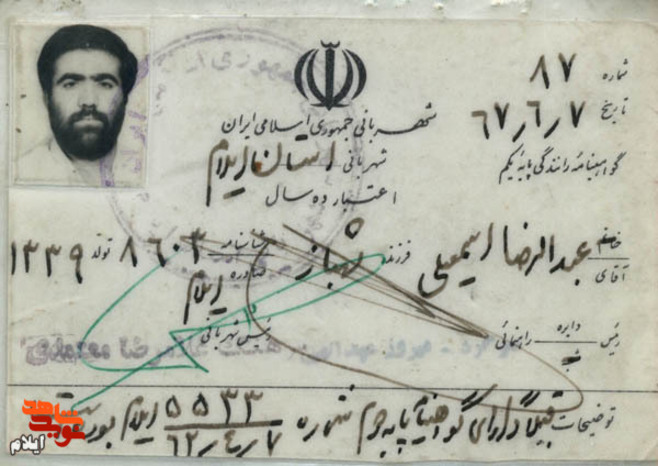 شماره ۸۷
تاریخ ۶۷٫۶٫۷
شهربانی جمهوری اسلامی ایران
گواهینامه رانندگی پایه یکم
شهربانی استان ایلام
اعتبار ده سال
خانم
آقای عبدالرضا اسمعیلی فرزند شهباز شناسنامه ۸۶۰۳ تولد ۱۳۳۹
صادره ایلام
رئیس دایره راهنمائی
رئیس شهربانی
توضیحات قبلاً دارای گواهینامه پایه دوم شماره ۵۵۳۳ ایلام بوده
۶۲٫۴٫۷
شاهد
نوید
ایلام